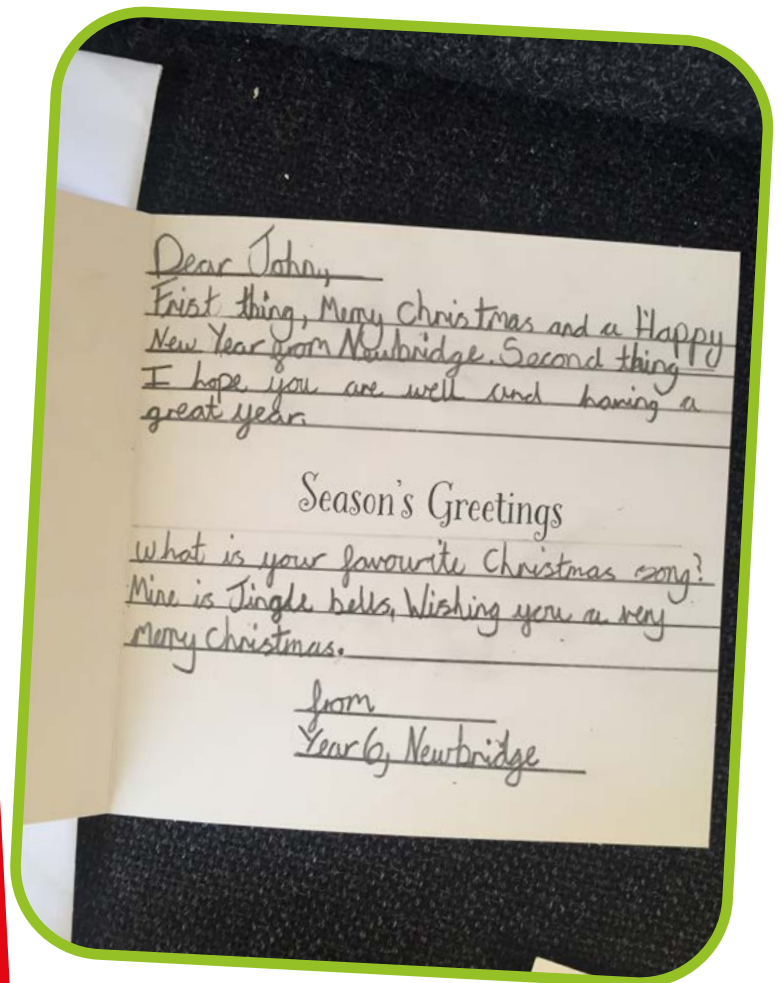 Dear John,
Frist thing, Merry Christmas and a Happy
New Year from Newbridge. Second thing
I hope you are well and having a
great year.
Season's Greetings
what is your favourite Christmas song?
Mine is Jingle bells, Wishing you a very
merry christmas.
from
Year 6, Newbridge